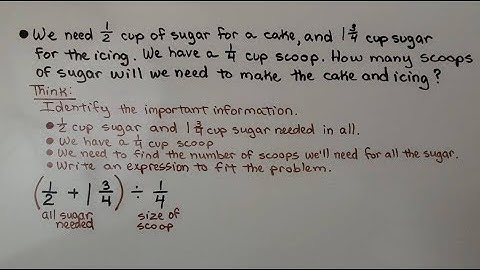 • We need 1/2 cup of sugar for a cake, and 1 3/4 cup sugar
for the icing. We have a 1/4 cup scoop. How many scoops
of sugar will we need to make the cake and icing?
Think:
Identify the important information.
• 1/2 cup sugar and 1 3/4 cup sugar needed in all.
• We have a 1/4 cup scoop
• We need to find the number of scoops we'll need for all the sugar.
• Write an expression to fit the problem.
(1/2 + 1 3/4) ÷ 1/4
all sugar needed size of scoop